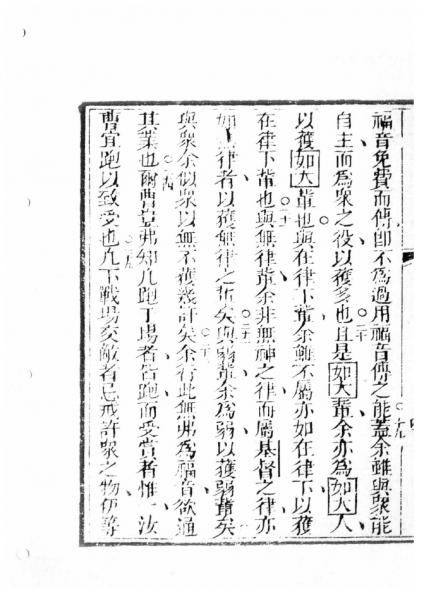 福音免費而傳卽不爲過用福音傳之能蓋余雖與衆能
自主而爲衆之役以獲多也且是如大輩余亦爲如大人
以獲如大輩也與在律下輩余雖不屬亦如在律下以獲
在律下輩也與無律輩余非無神之律而屬基督之律亦
如無律者以獲無律之輩矣與弱輩余爲弱以獲弱輩矣
與衆余似衆以無不獲幾許矣余行此無弗爲福音欲通
其業也爾曹豈弗知凡跑于場者皆跑而受賞者惟一汝
曹宜跑以致受也凡下戰場交敵者忌戒許衆之物伊等